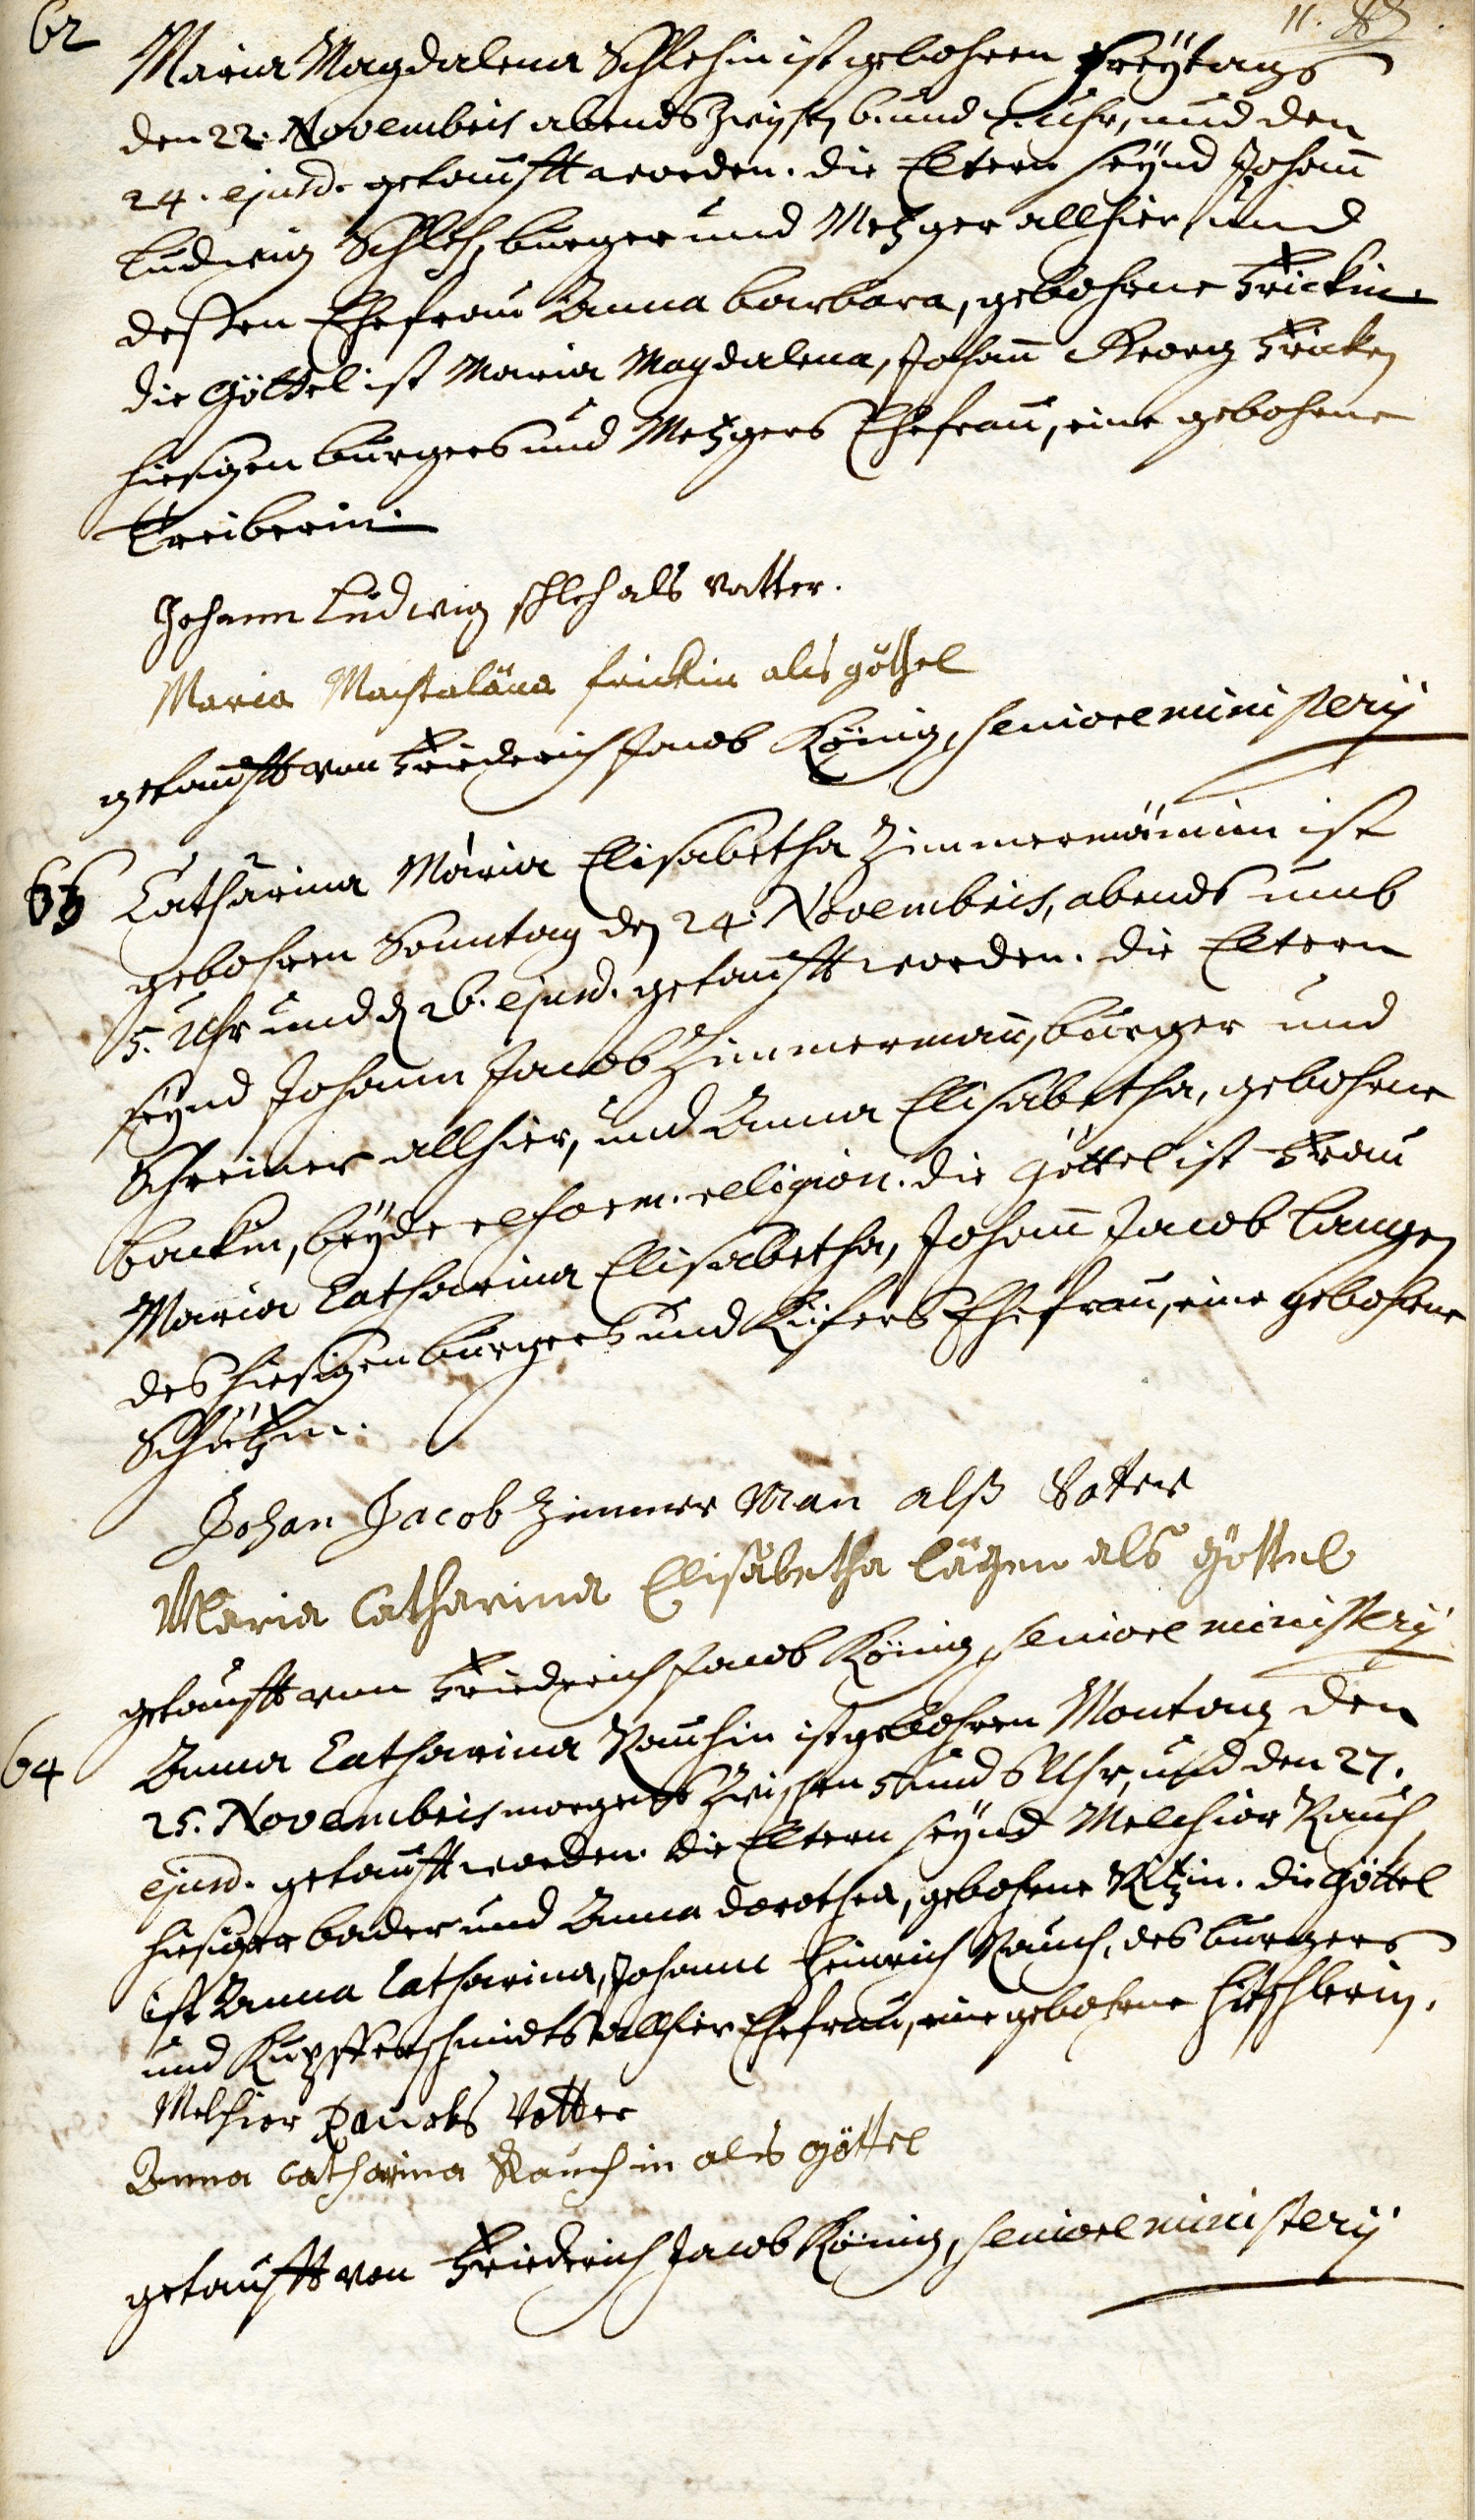 62
Maria Magdalena Schlehin ist gebohren Freÿtags
den 22. Novembris abends zwischen 6. und 7. uhr, und den
24. ejusd. getaufft worden. die Eltern seÿnd Johañ
Ludwig Schleh, burger und Metzger allhier, und
dessen Ehefrau Anna barbara, gebohrne Frickin.
die Göttel ist Maria Magdalena, Johañ Georg Fricken
hiesigen burgers und Metzgers Ehefrau, eine gebohrne
Treiberin.
Johann Ludwig schleh als vatter.
Maria Machtaläna frickin als göthel
getaufft von Friederich Jacob König, seniore ministerij
63 Catharina Maria Elisabetha Zimmermännin ist
gebohren Sonntag den 24. Novembris, abends umb
5. Uhr und d. 26. ejusd. getaufft worden. die Eltern
seÿnd Johann Jacob Zimmermañ, burger und
Schreiner allhier, und Anna Elisabetha, gebohrne
backin, beÿde reform. religion. die Göttel ist Frau
Maria Catharina Elisabetha, Johañ Jacob Langen
des hiesigen burgers und Küfers Ehefrau, eine gebohrne
Schützin.
Johan Jacob Zimmer Man alß Vatter
Maria Catharina Elisäbetha lägen als göttel
getaufft von Friederich Jacob König, seniore ministerij
64 Anna Catharina Rauchin ist gebohren Montag den
25. Novembris morgens zwischen 5 und 6 Uhr, und den 27.
ejusd. getaufft worden. die Eltern seÿnd Melchior Rauch
hiesiger bader und Anna dorothea, gebohrne Ritzin. die Göttel
ist Anna Catharina, Johann Heinrich Rauch, des burgers
und Kupfferschmidts allhier Ehefrau, eine gebohrne
Melchior Rauch als Vatter
Anna Catharina Rauchin als göttel
getaufft von Friederich Jacob König, seniore ministerij